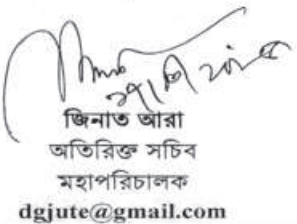 জিনাত আরা
অতিরিক্ত সচিব
মহাপরিচালক
dgjute@gmail.com